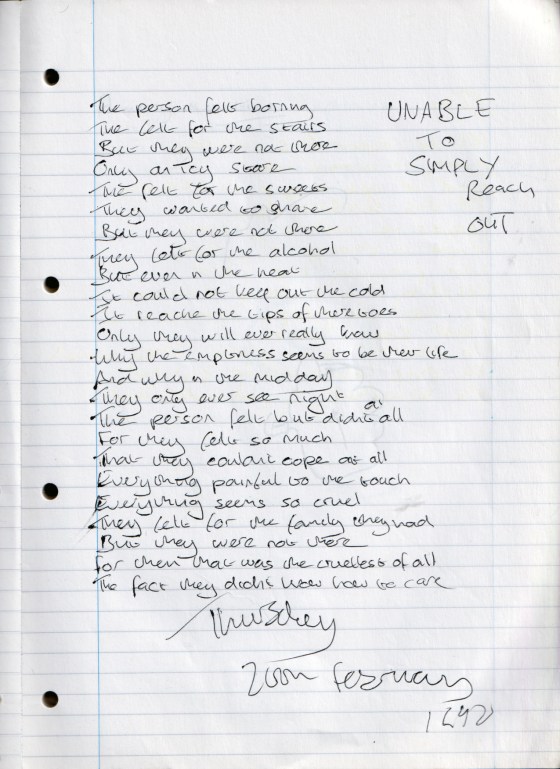 UNABLE
TO
SIMPLY
Reach
OUT
The person felt
The felt for the stairs
But they were not there
Only an Icy stare
The felt for the
They wanted to share
But they were not there
They felt for the alcohol
But even n the heat
It could not keep out the cold
It reache the tips of there toes
Only they will ever really know
Why the emptness seems to be their life
And why n the mid day
They only ever see night
The person felt but didnt at all
For they felt so much
That they couldnt cope at all
Everything painful to the touch
Everything seems so cruel
They felt for the family they had
But they were not there
For them that was the cruellest of all
The fact they didnt know how to care
Thursday
February